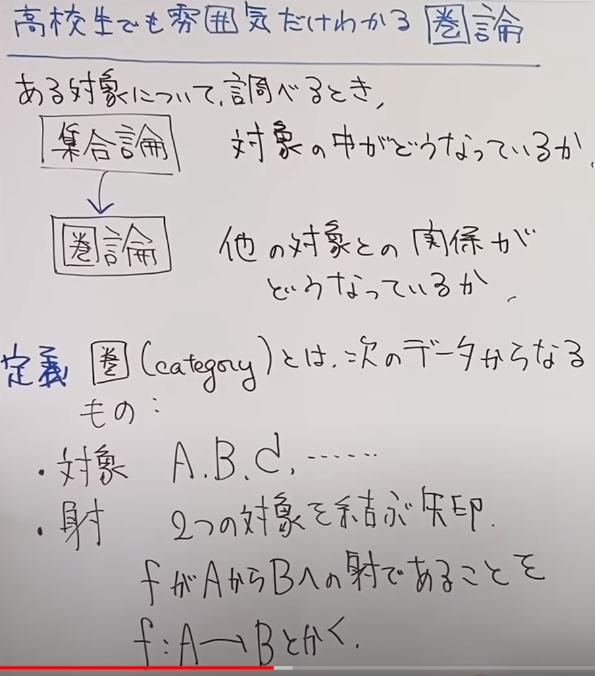 高校生でも雰囲気だけわかる 圏論
ある対象について、調べるとき,
集合論 対象の中がどうなっているか.
圏論 他の対象との関係が
どうなっているか.
定義 圏(category)とは、次のデータからなる
もの:
・対象 A.B.C.……
・射 2つの対象を結ぶ矢印.
fがAからBへの射であることを
f:A→Bとかく.